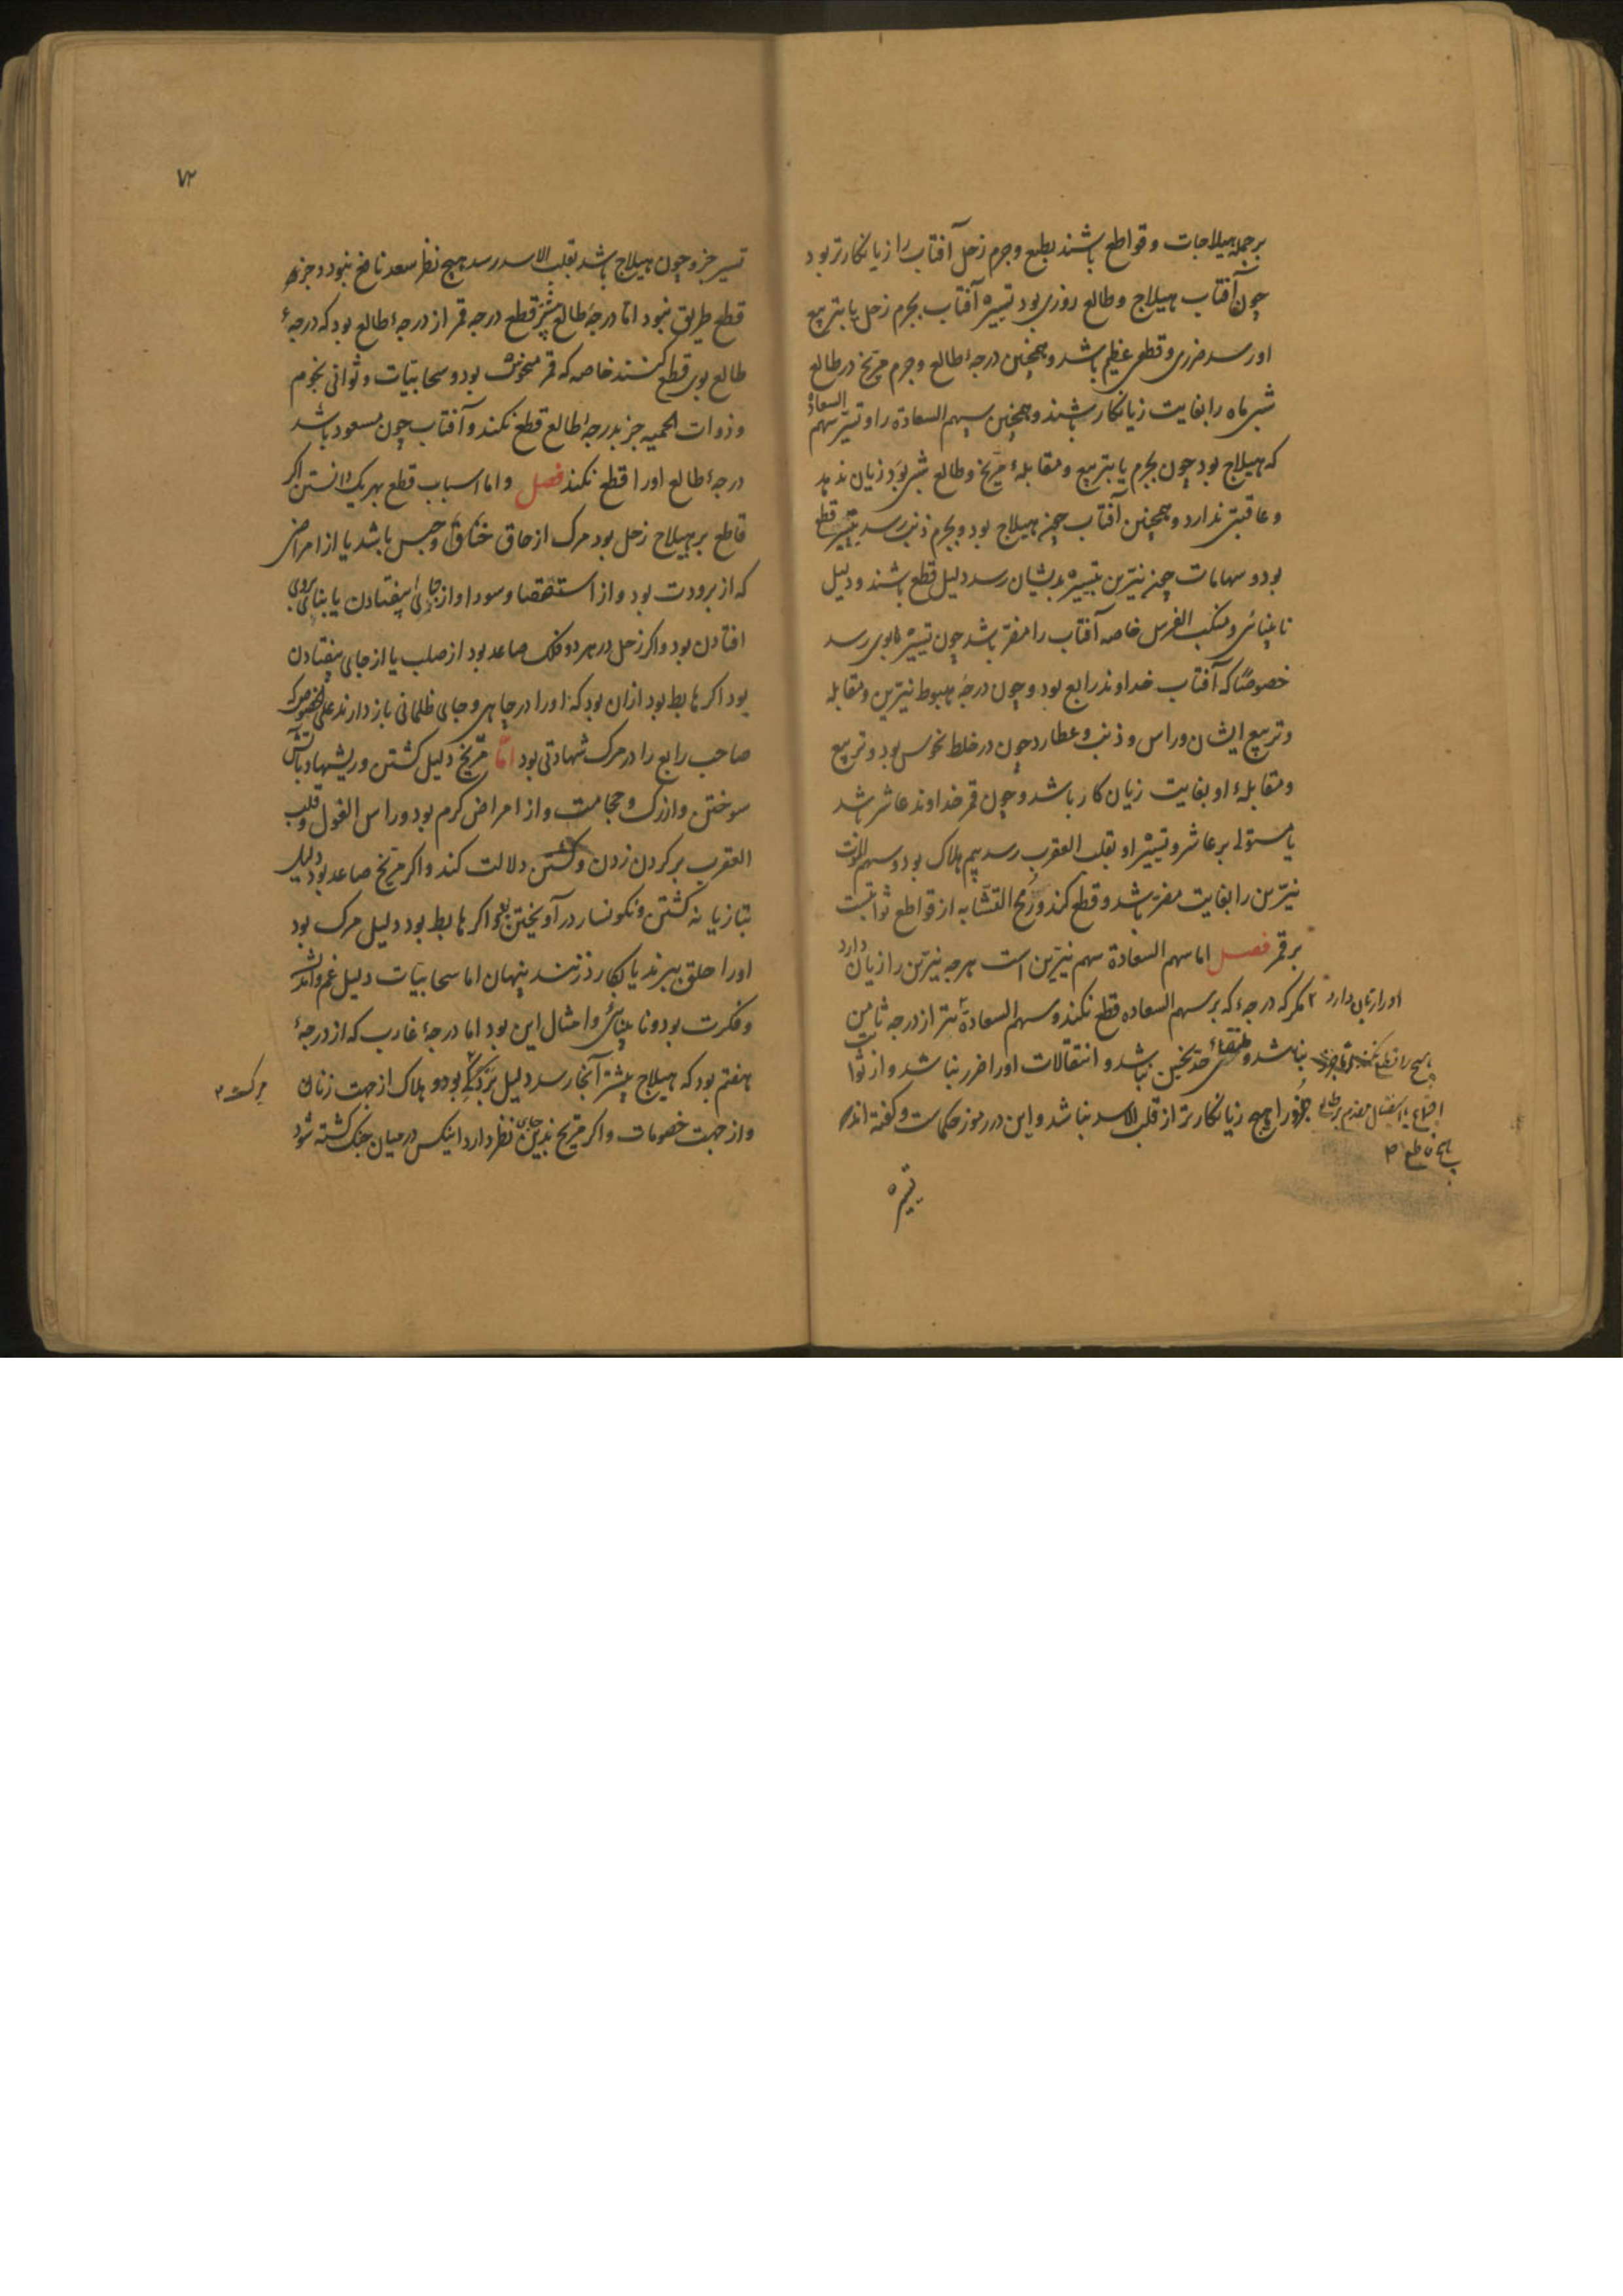 بر جمله هیلاجات و قواطع باشند بطبع و جرم زحل آفتاب را زیانکارتر بود
چون آفتاب هیلاج و طالع روزی بود تسییره آفتاب بجرم زحل یا بتربیع
او رسد ضرری و قطعی عظیم باشد و همچنین درجهٔ طالع و جرم مریخ در طالع
شبی ماه را بغایت زیانکار باشند و همچنین سهم السعادة را و تسییر سهم السعادة
که هیلاج بود چون بجرم یا بتربیع و مقابلهٔ مریخ و طالع شبی بود زیان ندهد
و عاقبتی ندارد و همچنین آفتاب چون هیلاج بود و بجرم ذنب رسد بتسییر قطع
بود و سهامات چون نیرین بتسییره بدیشان رسد دلیل قطع باشند و دلیل
نابینائی و منکب الفرس خاصه آفتاب را مضر باشد چون تسییره بوی رسد
خصوصًا که آفتاب خداوند رابع بود و چون درجهٔ هبوط نیرین و مقابله
و تربیع ایشان و راس و ذنب و عطارد چون در خلط نحوس بود و تربیع
و مقابلهٔ او بغایت زیان کار باشد و چون قمر خداوند عاشر باشد
یا مستولی بر عاشر و تسییر او بقلب العقرب رسد بیم هلاک بود و سهم الموت
نیرین را بغایت مضر باشد و قطع کند و رمح القشابه از قواطع ثوابتست
بر قمر فصل اما سهم السعادة سهم نیرین است هرچه نیرین را زیان دارد
او را زیان دارد مکر که درجهٔ که بر سهم السعاده قطع نکند و سهم السعادة بتر از درجه ثامن
نباشد و حد نحسین نباشد و انتقالات او را ضرر نباشد و از ثوابت
جزو را هیچ زیانکارتر از قلب الاسد نباشد و این در رموز حکماست و کفته اند
تسییره
۷۲
تسییر جزو چون هیلاج باشد بقلب الاسد رسد هیچ نظر سعد نافع نبود و جز
قطع طریق نبود اما درجهٔ طالع قطع درجه قمر از درجهٔ طالع بود که درجهٔ
طالع بوی قطع کنند خاصه که قمر منحوس بود و سحابیات و ثوانی نجوم
و ذوات الحمیه جز بدرجهٔ طالع قطع نکند و آفتاب چون مسعود باشد
درجهٔ طالع او را قطع نکند فصل و اما اسباب قطع بهر یک دانستن اکر
قاطع بر هیلاج زحل بود مرک از خناق و حبس باشد یا از امراضی
که از برودت بود و از استسقا و سودا و از جائی بیفتادن یا بنای بروی
افتادن بود و اکر زحل در هر دو فلک صاعد بود از صلب یا از جای بیفتادن
بود اکر هابط بود ازان بود که او را در چاهی و جای ظلمانی باز دارند علی الخصوص که
صاحب رابع را در مرک شهادتی بود اما مریخ دلیل کشتن و ریشها و بآتش
سوختن و از رک و حجامت و از امراض کرم بود و راس الغول و قلب
العقرب بر کردن زدن و کشتن دلالت کند و اکر مریخ صاعد بود دلیل
بتازیانه کشتن و نکونسار در آویختن بود و اکر هابط بود دلیل مرک بود
او را حلق ببرند یا بکارد زنند پنهان اما سحابیات دلیل غم و اندیشه
و فکرت بود و نابینائی و امثال این بود اما درجهٔ غارب که از درجهٔ
هفتم بود که هیلاج بیشتر آنجا رسد دلیل بود و هلاک از جهت زنان
و از جهت خصومات و اکر مریخ بدین جای نظر دارد اینکس در میان جنک کشته شود